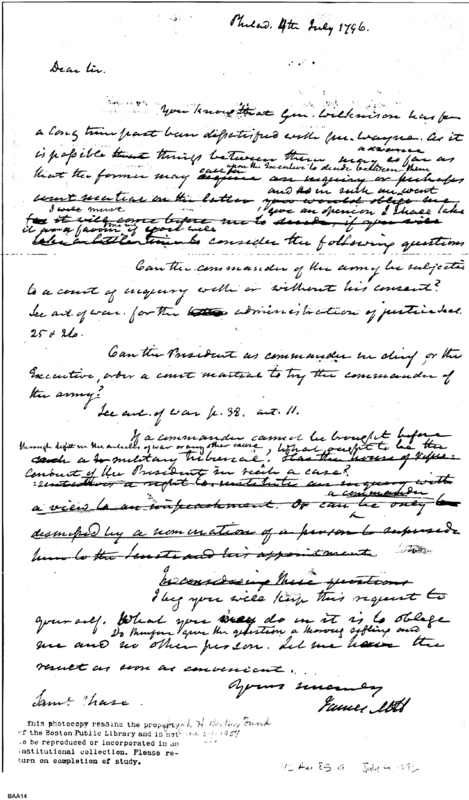 Philad. 4th July 1796.
Dear Sir.
You know that Gen. Wilkinson has for
a long time past been dissatisfied with Gen. Wayne. As it
advance
is possible that things between them may as far as
upon the Executive to decide between them
call for
that the former may require an inquiry or perhaps
and as in such an event
court martial on the latter you would oblige me
I will must give an opinion I shall take
for it will come before me to decide, if you will
it for a favour if you will
take a little time to consider the following questions
Can the commander of the army be subjected
to a court of inquiry with or without his consent?
See art of war. for the administration of justice Sect.
25 & 26.
Can the President as commander in chief, or the
Executive, order a court martial to try the commander of
the army?
See art. of war p. 38. art. 11.
If a commander cannot be brought before
through defect in the articles of war or any other cause, What ought to be the
such a military tribunal. Has the house of Repre-
conduct of the President in such a case?
a right to institute an inquiry with
a commander
a view to an impeachment. Or can he only be
dismissed by a nomination of a person to supersede
him to the Senate and his appointment
In considering these questions
I beg you will keep this request to
yourself. What you may do in it is to oblige
Do therefore give the question a thorough sifting and
me and no other person. Let me have the
result as soon as convenient.
Yours sincerely
James McH
Saml. Chase.
This photocopy remains the property
of the Boston Public Library and is not
to be reproduced or incorporated in an
institutional collection. Please re-
turn on completion of study.
July 4 1796
BAA14